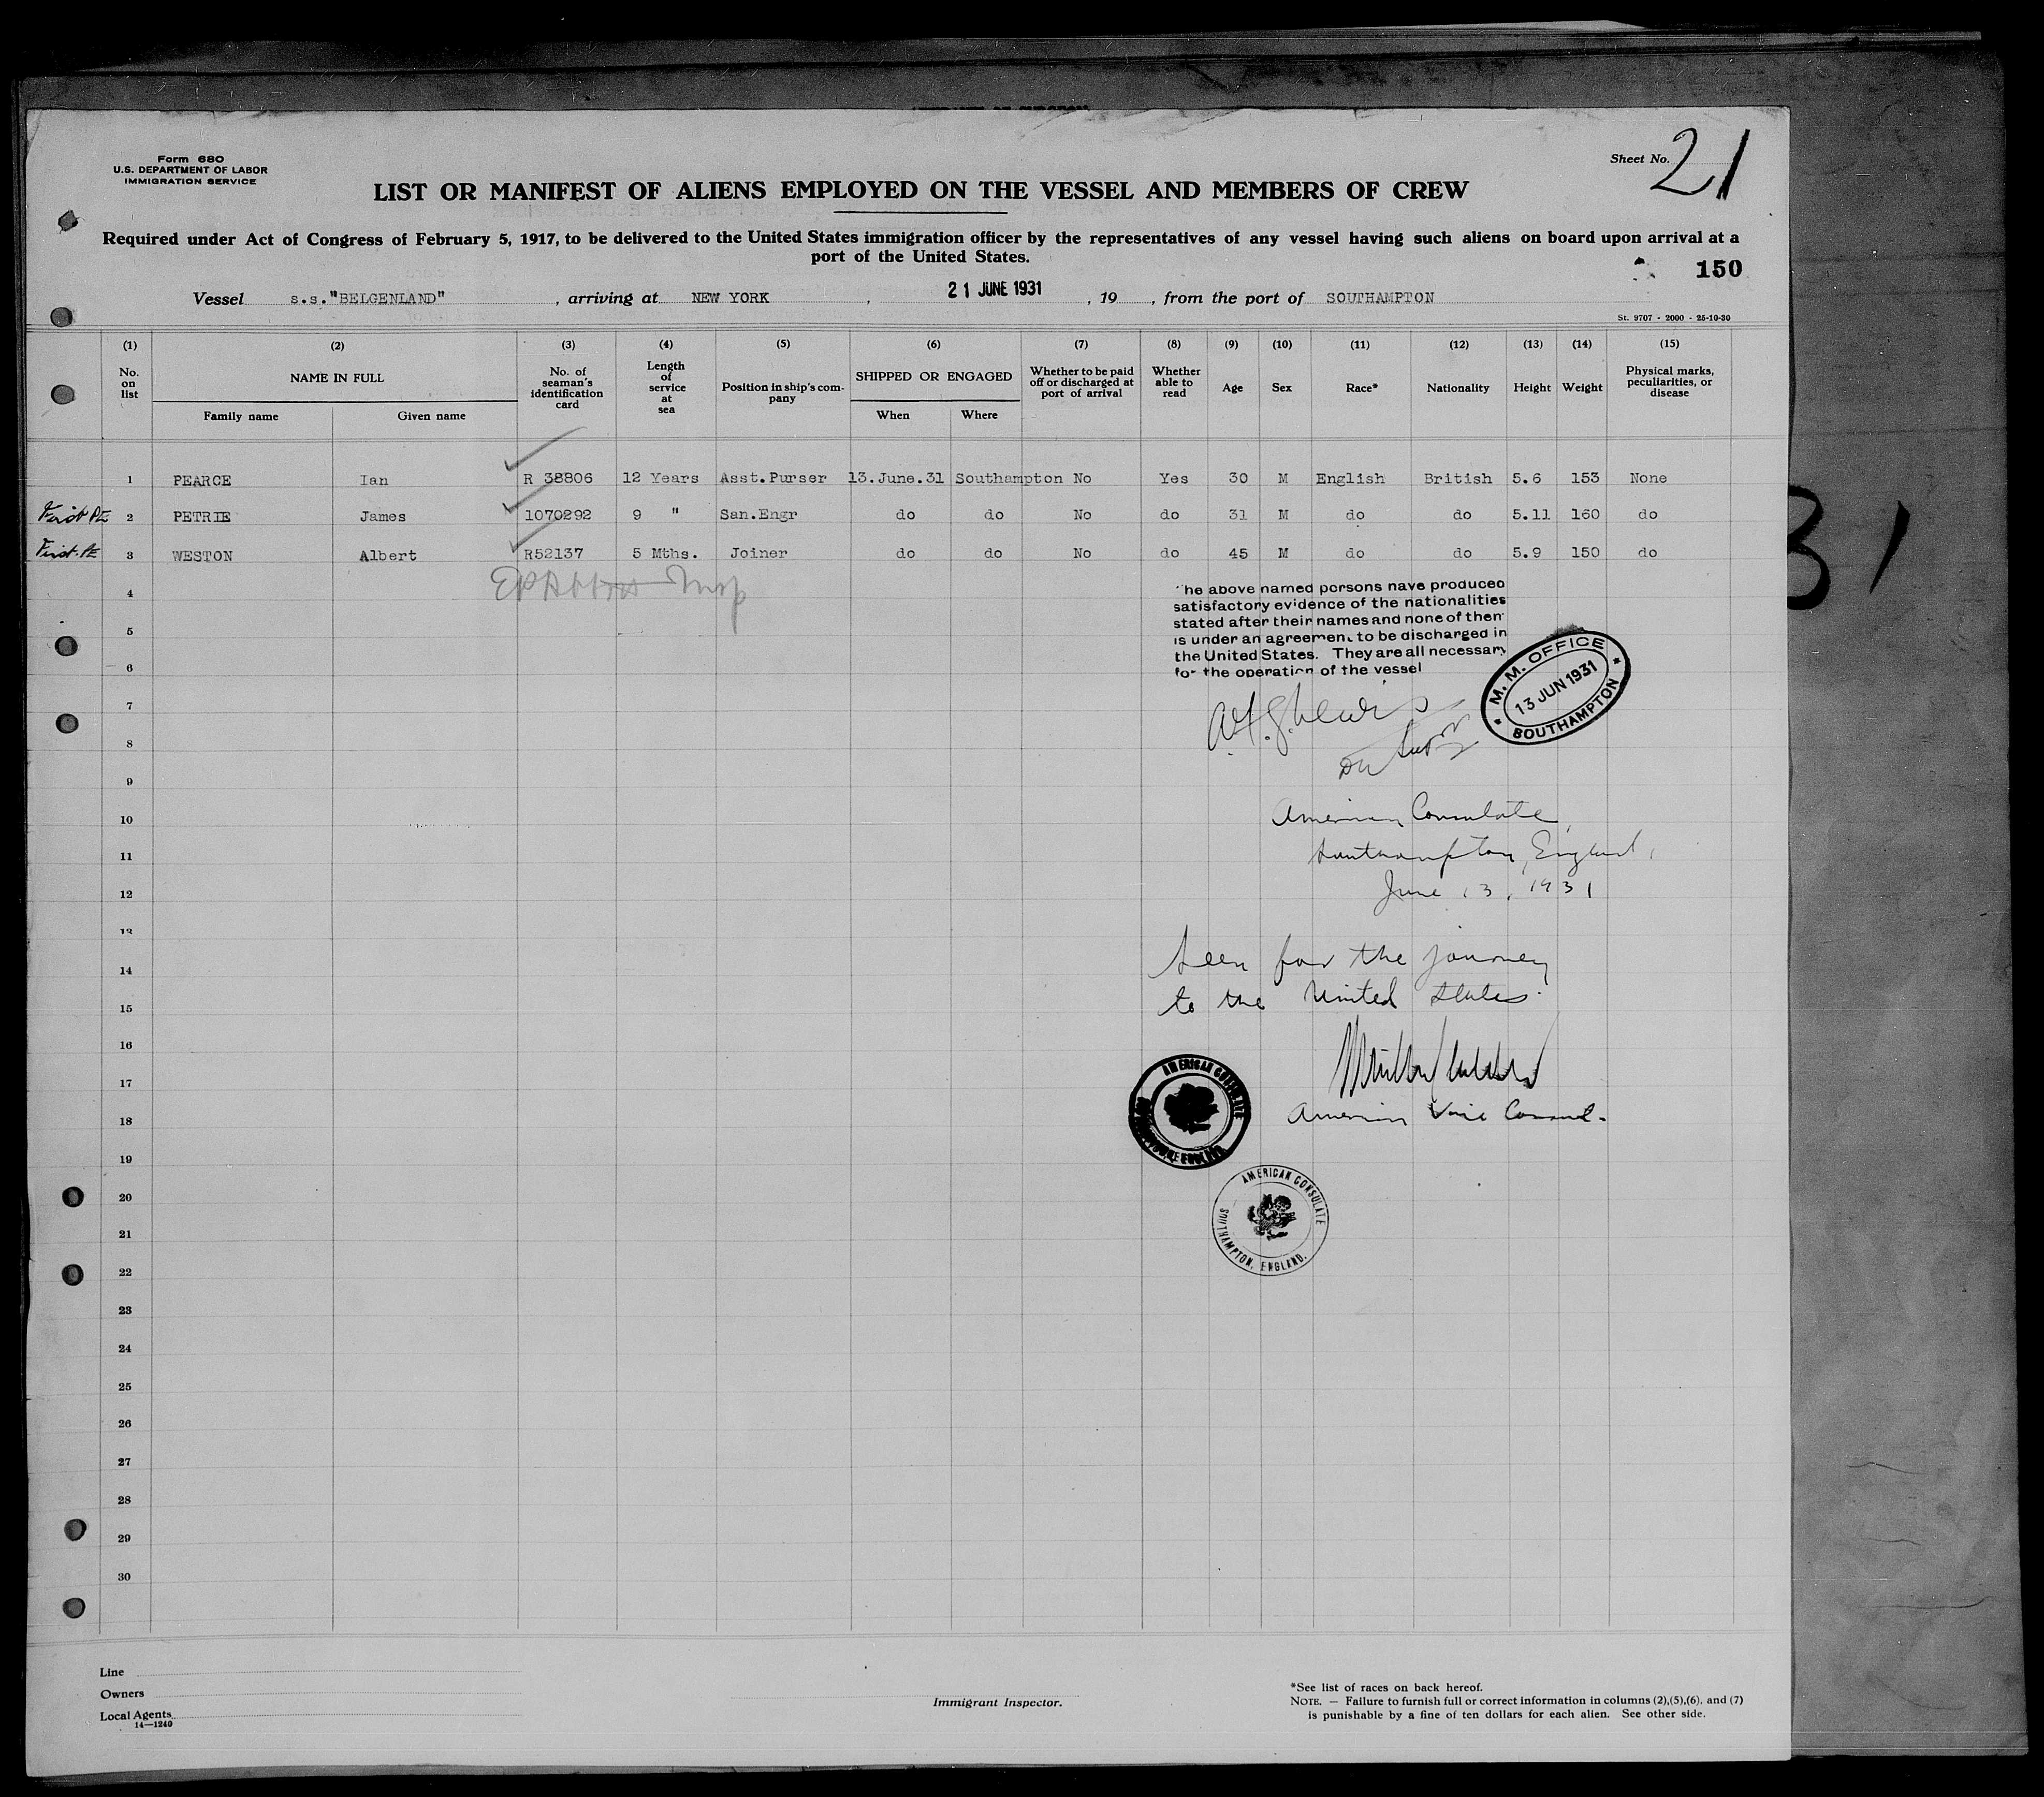 Form 680
U.S. DEPARTMENT OF LABOR
IMMIGRATION SERVICE
Sheet No. 21
LIST OR MANIFEST OF ALIENS EMPLOYED ON THE VESSEL AND MEMBERS OF CREW
Required under Act of Congress of February 5, 1917, to be delivered to the United States immigration officer by the representatives of any vessel having such aliens on board upon arrival at a
port of the United States.
150
Vessel s.s."BELGENLAND" , arriving at NEW YORK , 21 JUNE 1931 , 19 , from the port of SOUTHAMPTON
St. 9707 - 2000 - 25-10-30
(1) (2) (3) (4) (5) (6) (7) (8) (9) (10) (11) (12) (13) (14) (15)
No. on list
NAME IN FULL
Family name Given name
No. of seaman's identification card
Length of service at sea
Position in ship's company
SHIPPED OR ENGAGED
When Where
Whether to be paid off or discharged at port of arrival
Whether able to read
Age
Sex
Race*
Nationality
Height
Weight
Physical marks, peculiarities, or disease
1 PEARCE Ian R 38806 12 Years Asst.Purser 13.June.31 Southampton No Yes 30 M English British 5.6 153 None
First 2 PETRIE James 1070292 9 " San.Engr do do No do 31 M do do 5.11 160 do
First 3 WESTON Albert R52137 5 Mths. Joiner do do No do 45 M do do 5.9 150 do
4
5
6
7
8
9
10
11
12
13
14
15
16
17
18
19
20
21
22
23
24
25
26
27
28
29
30
he above named persons have produced
satisfactory evidence of the nationalities
stated after their names and none of them
is under an agreement to be discharged in
the United States. They are all necessary
for the operation of the vessel
M. M. OFFICE
13 JUN 1931
SOUTHAMPTON
American Consulate,
Southampton, England,
June 13, 1931
Seen for the journey
to the United States.
American Vice Consul.
AMERICAN CONSULATE
AMERICAN CONSULATE
SOUTHAMPTON, ENGLAND.
Line
Owners
Local Agents
14—1240
Immigrant Inspector.
*See list of races on back hereof.
NOTE. — Failure to furnish full or correct information in columns (2),(5),(6), and (7)
is punishable by a fine of ten dollars for each alien. See other side.
31